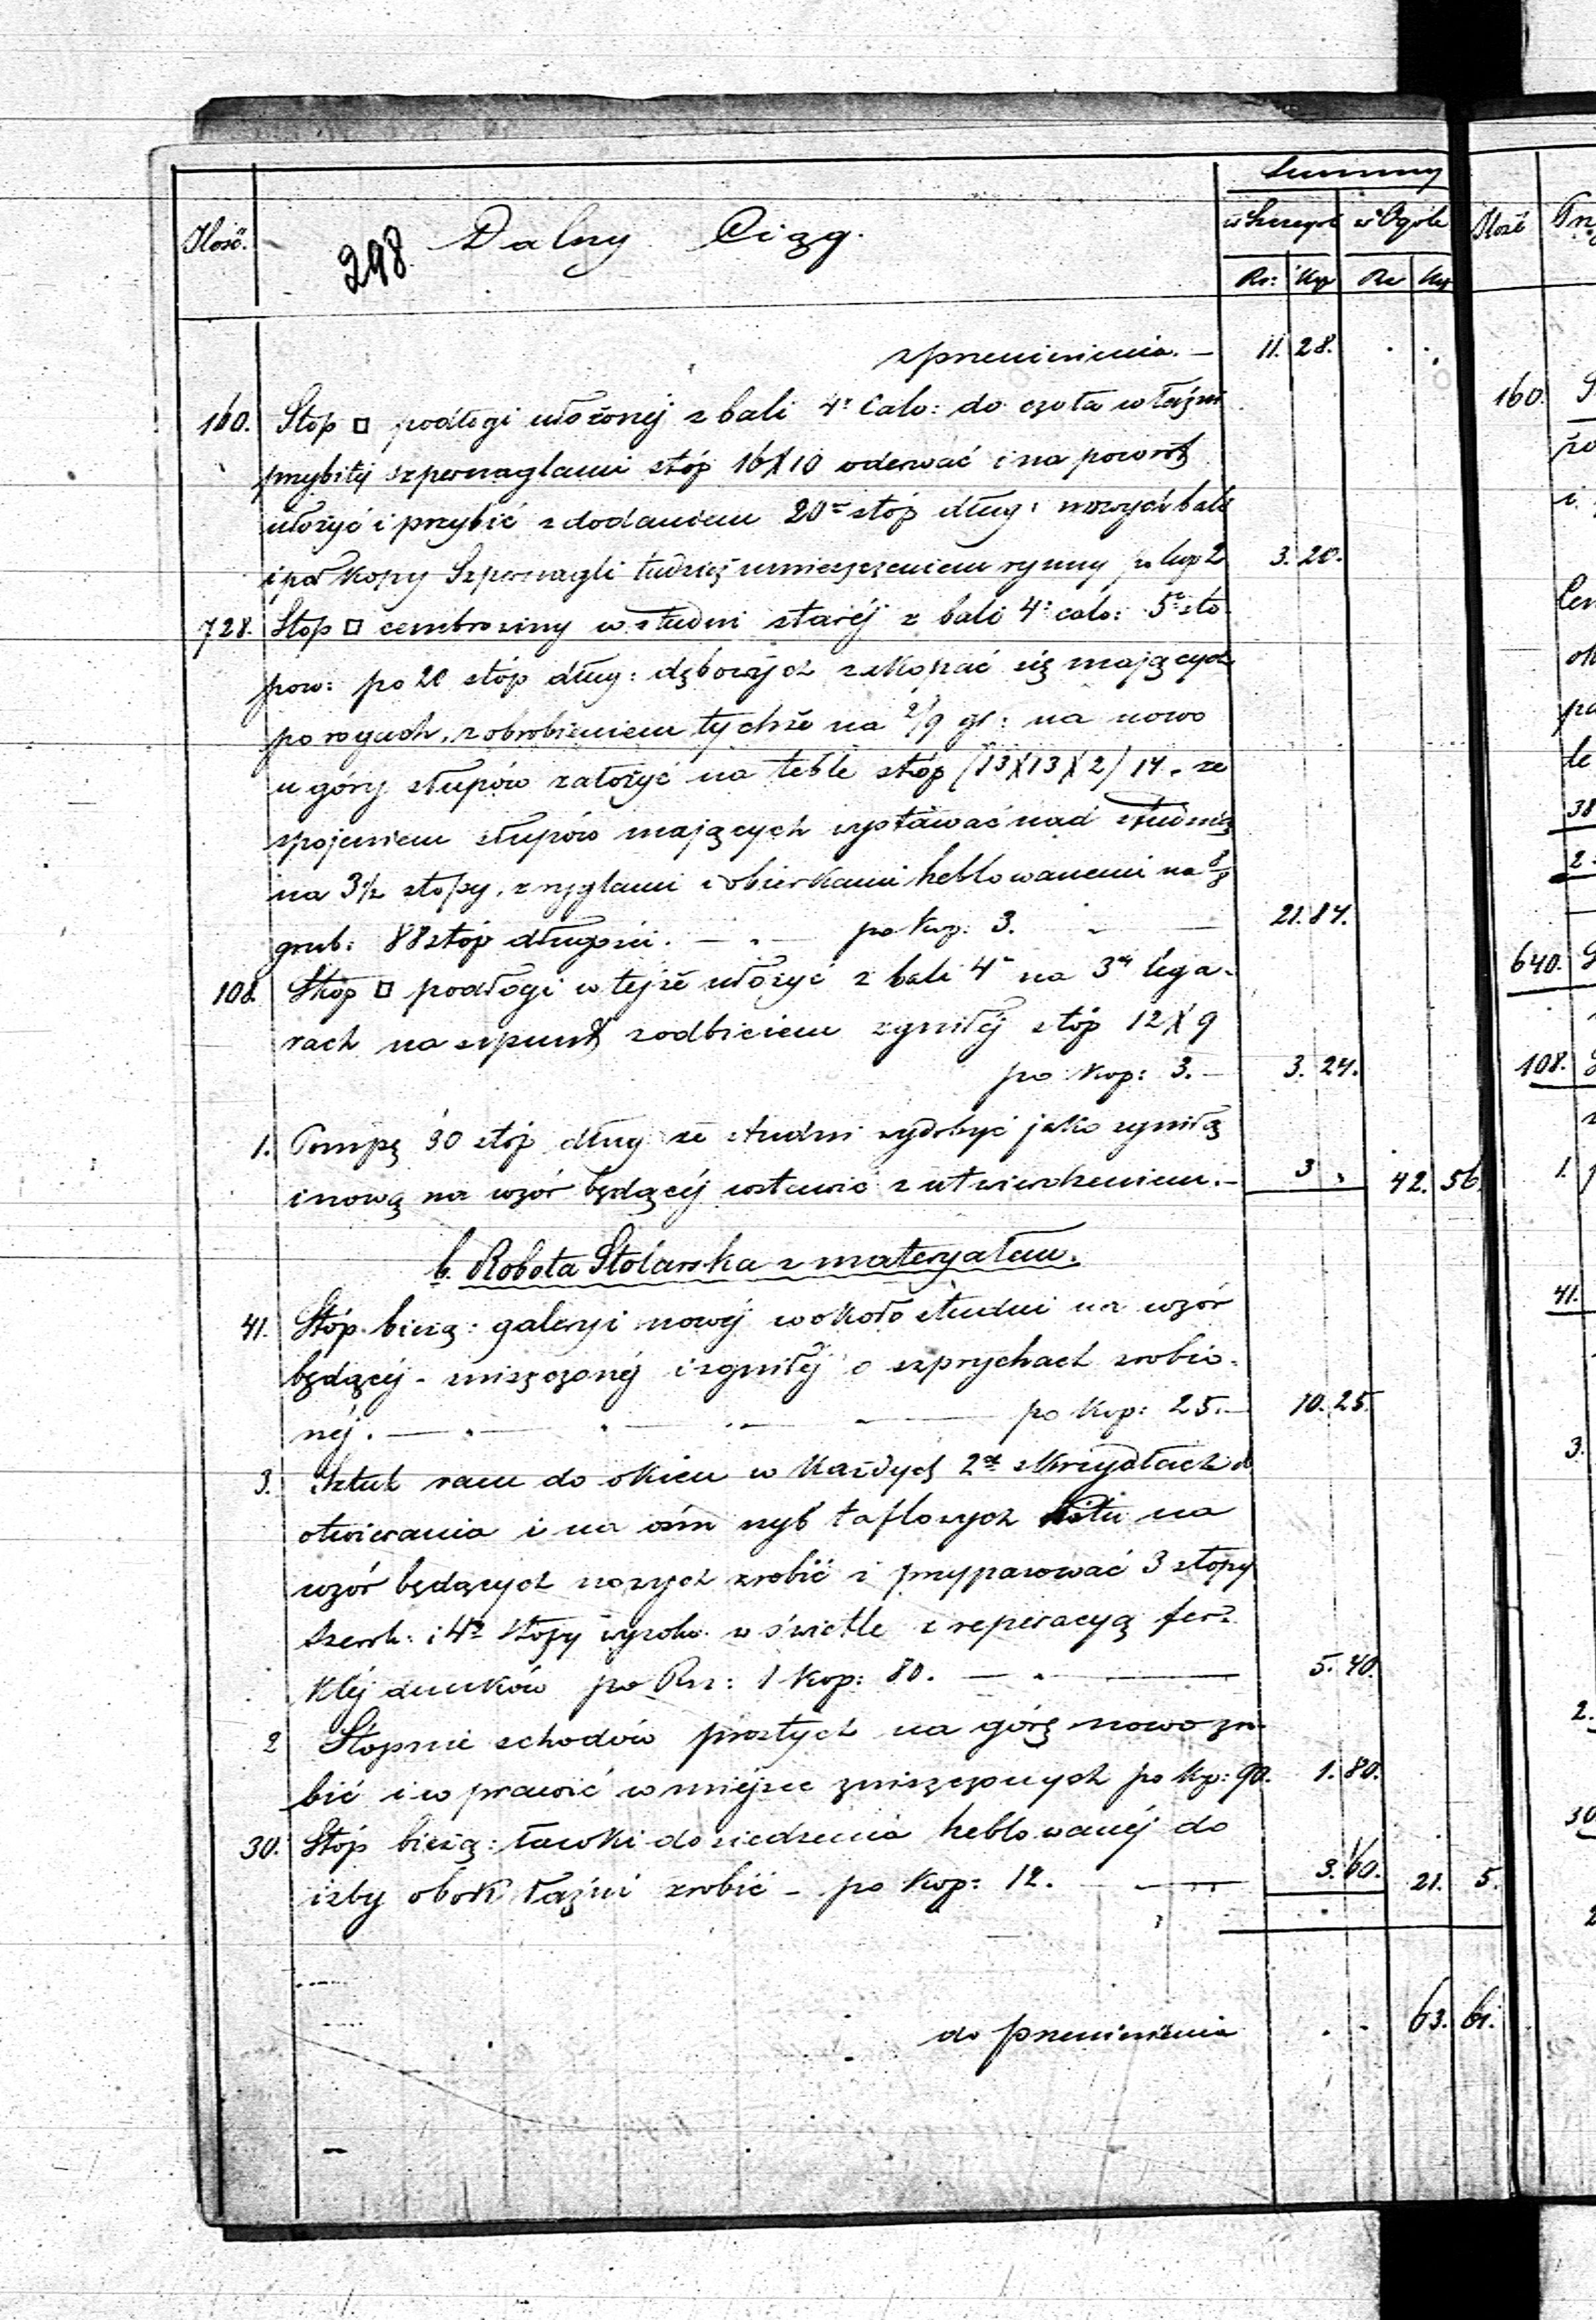 Summy
Ilość. 298 Dalszy Ciąg. w Szczegól w Ogóle
Rs: Kop Rs Kop
z przeniesienia. — 11. 28.
160. Stóp □ podłogi ułożonéj z bali 4ᵒ Calo: do czoła w łaźni
przybitéj szpernaglami stóp 16X10 oderwać i na powrót
ułożyć i przybić z dodaniem 20 stóp dług: nowych bali
i pół kopy Szpernagli tudzież umieszczeniem rynny po kop 2 3. 20.
728. Stóp □ cembrowiny w studni staréj z bali 4ᵒ calo: 5 słu
pow: po 20 stóp dług: dębowych zakopać się mających
po rogach, z obrobieniem tychże na 9/9 gr: na nowo
u góry słupów założyć na teble stóp (13X13X2) 14. ze
spojeniem słupów mających wystawać nad studnią
na 3½ stopy, z ryglami i obierkami heblowanemi na
grub: 88 stóp długości. — . — po kop: 3. — 21. 84.
108. Stóp □ podłogi w tejże ułożyć z bali 4 na 3ch lega-
rach na szpunt z odbiciem zgniłéj stóp 12X9
po kop: 3. — 3. 24.
1. Pompę 30 stóp dług ze studni wydobyć jako zgniłą
i nową na wzór będącéj wstawić z utwierdzeniem. — 3 „ 42. 56.
b. Robota Stolarska z materyałem.
41. Stóp bieżą: galeryi nowéj w około studni na wzór
będącéj - zniszczonéj i zgniłéj o szprychach zrobio-
néj. — po kop: 25. — 10. 25.
3. Sztuk ram do okien w każdych 2ch skrzydłach do
otwierania i na ośm szyb taflowych na
wzór będących nowych zrobić i przypasować 3 stopy
szerok: i 4½ stopy wysoko. w świetle z reperacyą
po Rsr: 1 kop: 80. — . — 5. 40.
2 Stopnie schodów prostych na górę nowo zro-
bić i w prawić w miejsce zniszczonych po kop: 90. 1. 80.
30. Stóp bieżą: ławki do siedzenia heblowanéj do
izby obok łaźni zrobić — po kop: 12. — 3. 60. 21. 5.
do przeniesienia . . 63. 61.